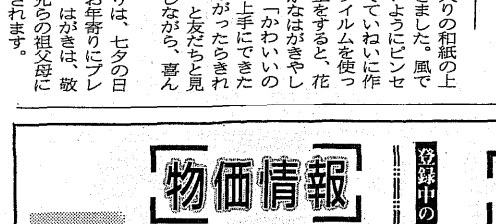 りの和紙の上
ました。風で
ようにピンセ
ていねいに作
イルムを使っ
をすると、花
なはがきやし
「かわいいの
上手にできた
がったらきれ
と友だちと見
しながら、喜ん
りは、七夕の日
お年寄りにプレ
はがきは、敬
らの祖父母に
されます。
登録中の
物価情報